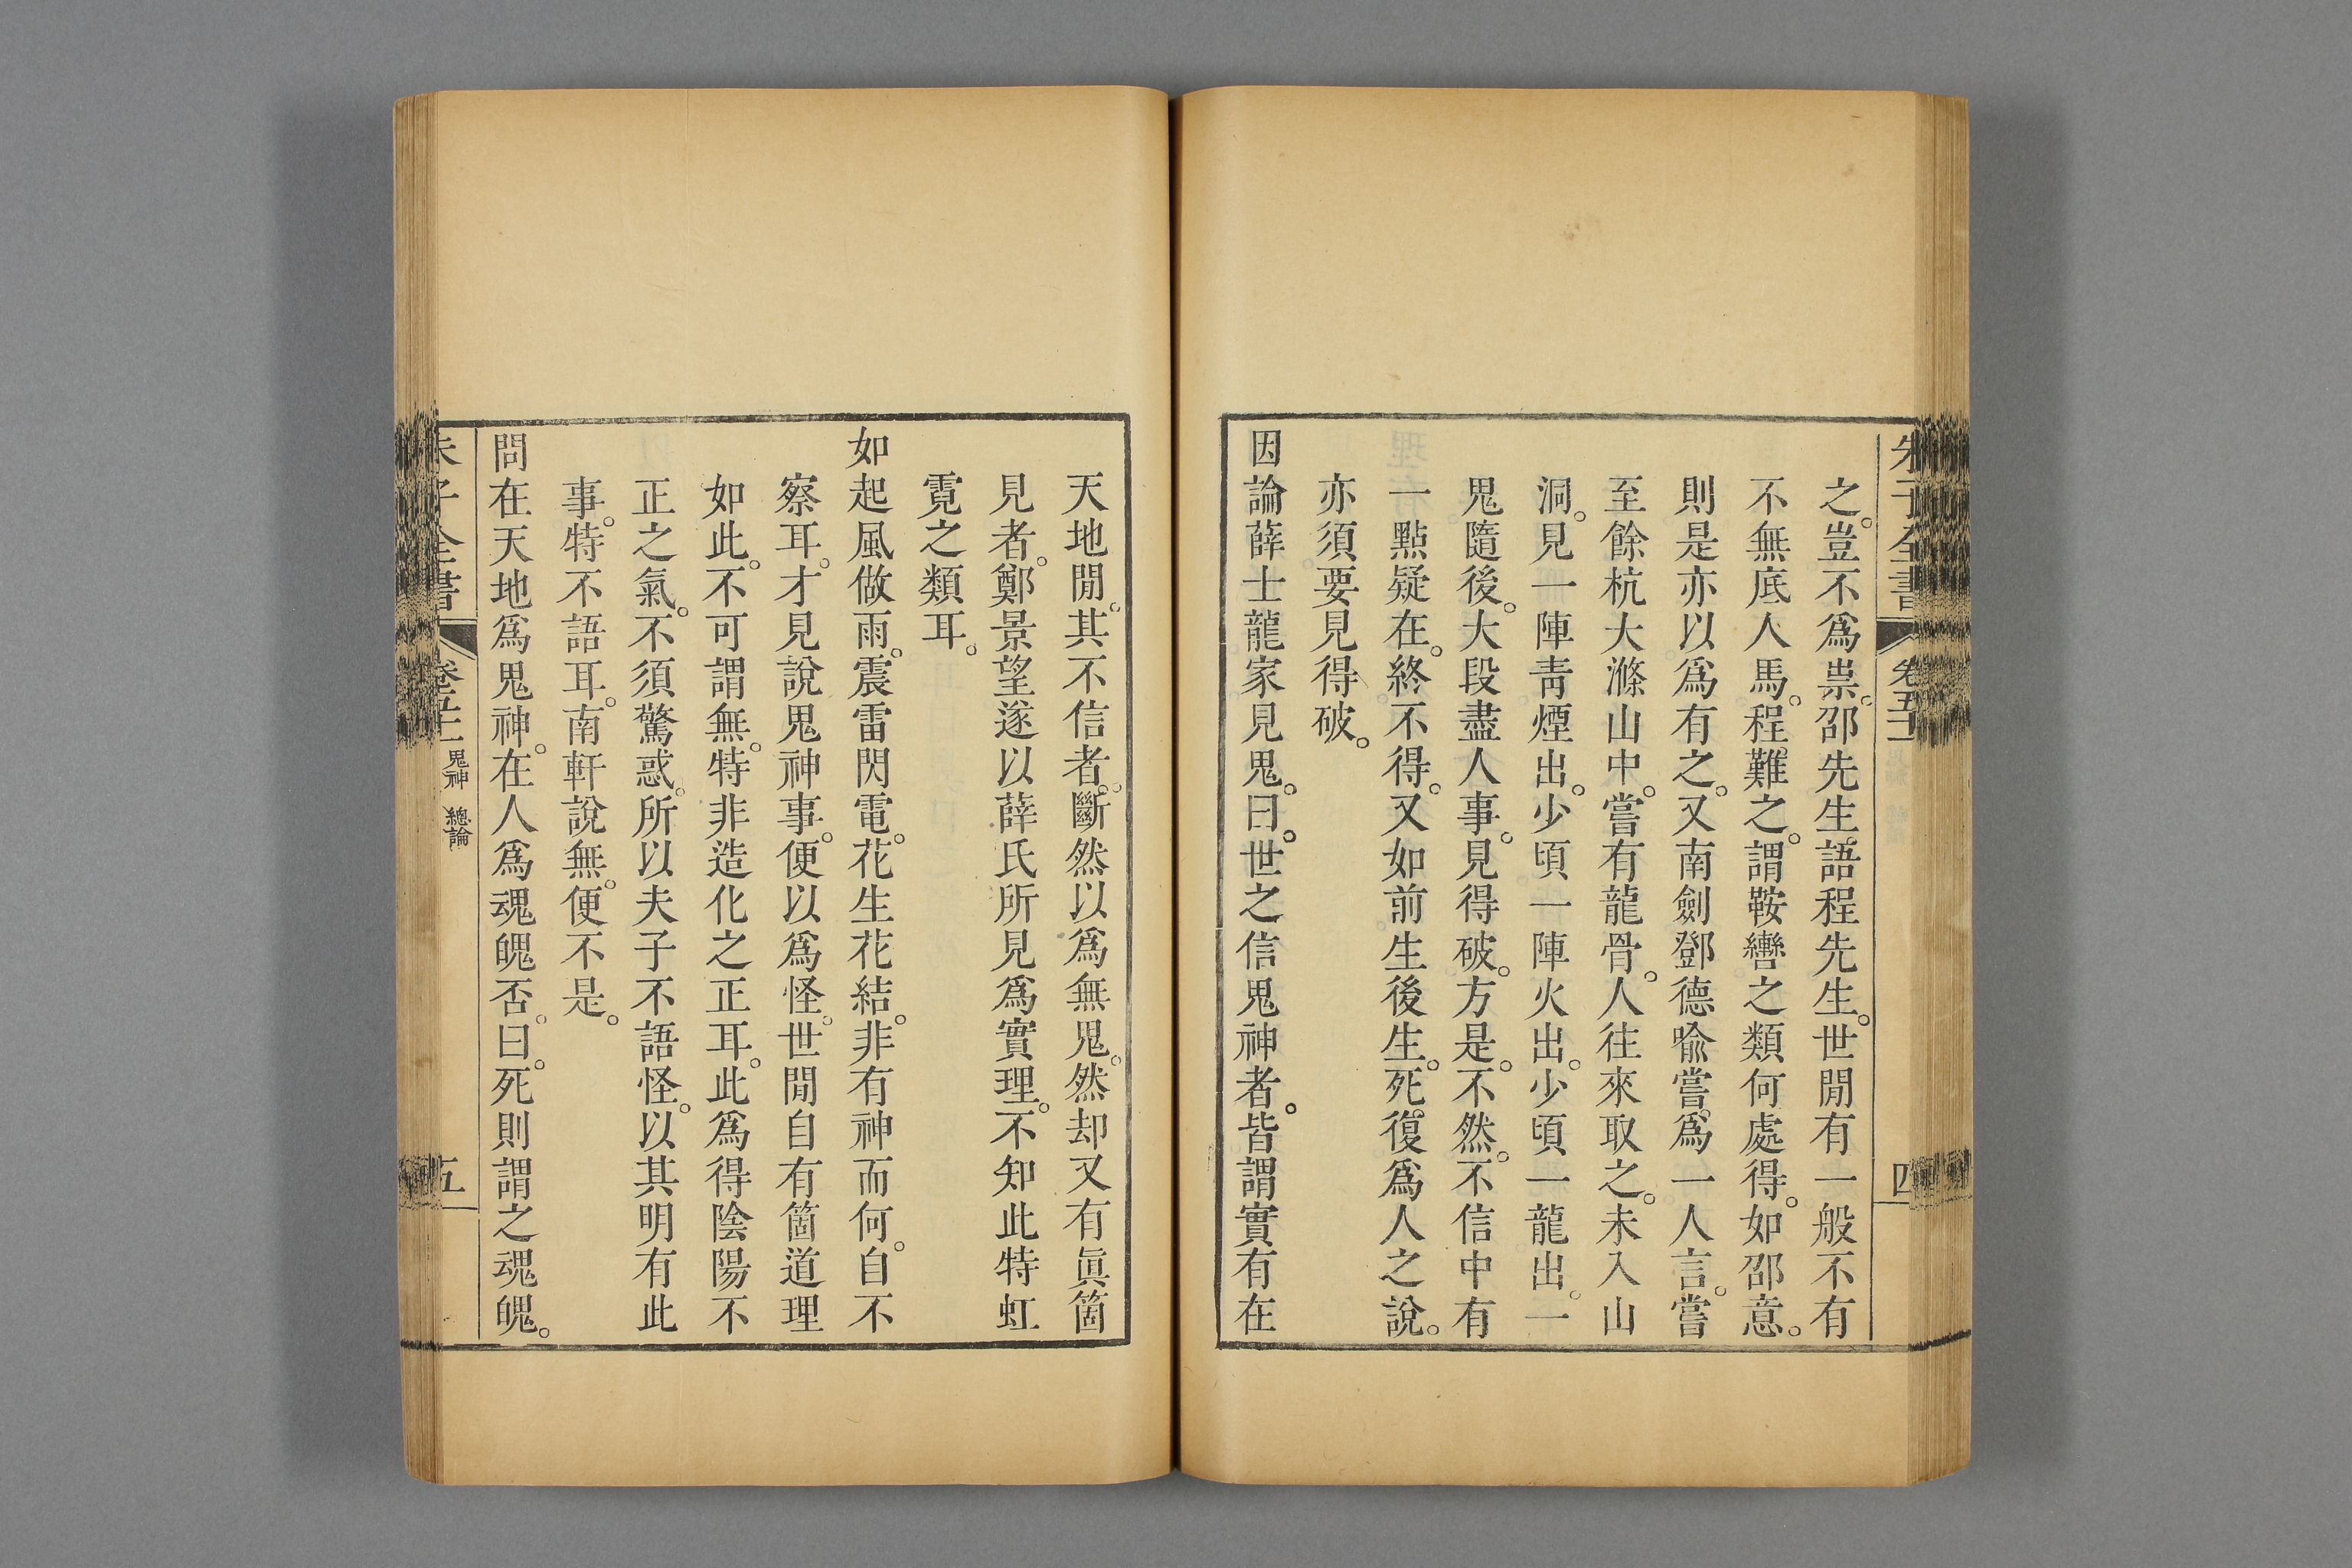 朱子全書 卷五十一 四
之。豈不爲祟。邵先生語程先生。世閒有一般不有
不無底人馬。程難之。謂鞍轡之類何處得。如邵意。
則是亦以爲有之。又南劍鄧德喻嘗爲一人言。嘗
至餘杭大滌山中。嘗有龍骨。人往來取之。未入山
洞。見一陣靑煙出。少頃一陣火出。少頃一龍出。一
鬼隨後。大段盡人事。見得破。方是。不然。不信中有
一點疑在。終不得。又如前生後生。死復爲人之說。
亦須要見得破。
因論薛士龍家見鬼。曰。世之信鬼神者。皆謂實有在
天地閒。其不信者。斷然以爲無鬼。然却又有眞箇
見者。鄭景望遂以薛氏所見爲實理。不知此特虹
霓之類耳。
如起風做雨。震雷閃電。花生花結。非有神而何。自不
察耳。才見說鬼神事。便以爲怪。世閒自有箇道理
如此。不可謂無。特非造化之正耳。此爲得陰陽不
正之氣。不須驚惑。所以夫子不語怪。以其明有此
事。特不語耳。南軒說無。便不是。
問在天地爲鬼神。在人爲魂魄否。曰。死則謂之魂魄。
朱子全書 卷五十一 鬼神 總論 五